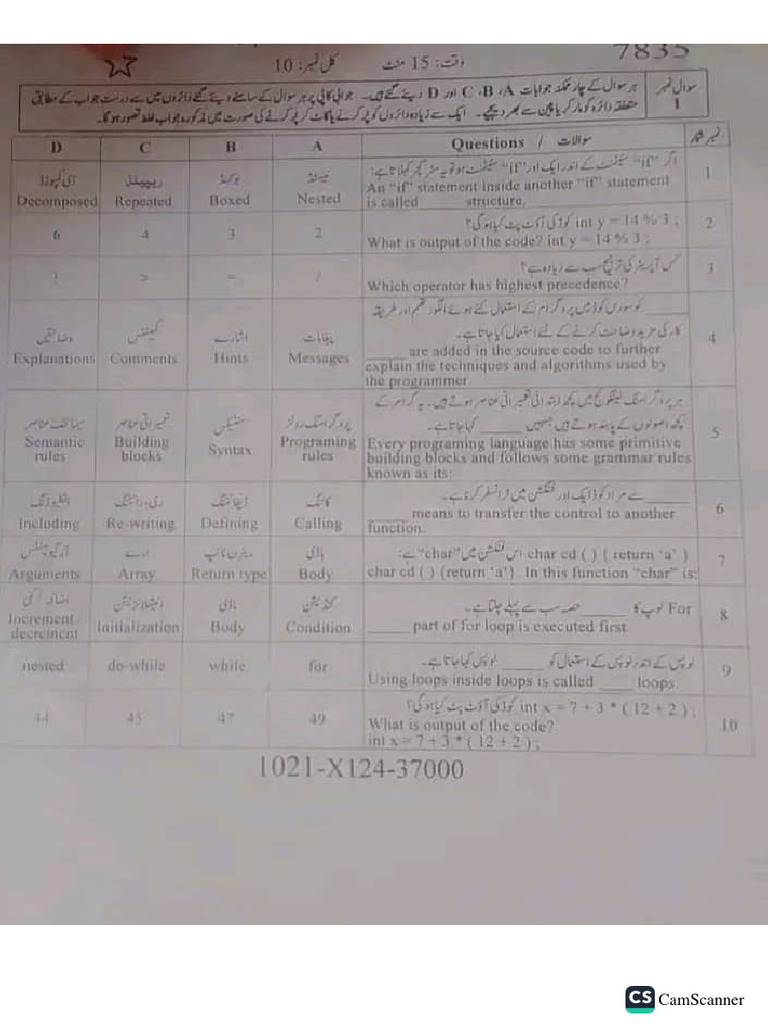 7835
وقت: 15 منٹ
کل نمبر: 10
سوال نمبر 1
ہر سوال کے چار ممکنہ جوابات A، B، C اور D دیئے گئے ہیں۔ جوابی کاپی پر ہر سوال کے سامنے دیئے گئے دائروں میں سے درست جواب کے مطابق
متعلقہ دائرہ کو مارکر یا پین سے بھر دیجیے۔ ایک سے زیادہ دائروں کو پُر کرنے یا کاٹ کر پُر کرنے کی صورت میں مذکورہ جواب غلط تصور ہو گا۔
D C B A Questions / سوالات نمبر شمار
1
اگر "if" سٹیٹمنٹ کے اندر ایک اور "if" سٹیٹمنٹ ہو تو یہ سٹرکچر کہلاتا ہے:
An "if" statement inside another "if" statement
is called ____ structure.
ڈی کمپوزڈ ریپیٹڈ بوکسڈ نیسٹڈ
Decomposed Repeated Boxed Nested
2
int y = 14 % 3 ; کوڈ کی آؤٹ پٹ کیا ہو گی؟
What is output of the code? int y = 14 % 3 ;
6 4 3 2
3
کس آپریٹر کی ترجیح سب سے زیادہ ہے؟
Which operator has highest precedence?
! > = /
4
____ کو سورس کوڈ میں پروگرام کے استعمال کئے ہوئے الگورتھم اور طریقہ
کار کی مزید وضاحت کرنے کے لئے استعمال کیا جاتا ہے۔
____ are added in the source code to further
explain the techniques and algorithms used by
the programmer.
وضاحتیں کمنٹس اشارے پیغامات
Explanations Comments Hints Messages
5
ہر پروگرامنگ لینگوئج میں کچھ ابتدائی تعمیراتی عناصر ہوتے ہیں۔ یہ گرامر کے
کچھ اصولوں کے پابند ہوتے ہیں جنہیں ____ کہا جاتا ہے۔
Every programing language has some primitive
building blocks and follows some grammar rules
known as its:
سیمانٹک عناصر تعمیراتی عناصر سنٹیکس پروگرامنگ رولز
Semantic rules Building blocks Syntax Programing rules
6
____ سے مراد کوڈ ایک اور فنکشن میں ٹرانسفر کرنا ہے۔
____ means to transfer the control to another
function.
انکلیوڈنگ ری-رائٹنگ ڈیفائننگ کالنگ
Including Re-writing Defining Calling
7
char cd ( ) { return 'a' } اس فنکشن میں "char" ہے:
char cd ( ) {return 'a'}. In this function "char" is:
آرگیومینٹس ارے ریٹرن ٹائپ باڈی
Arguments Array Return type Body
8
For لوپ کا ____ حصہ سب سے پہلے چلتا ہے۔
____ part of for loop is executed first.
اضافہ / کمی انیشلائزیشن باڈی کنڈیشن
Increment / decreinent Initialization Body Condition
9
لوپس کے اندر لوپس کے استعمال کو ____ لوپس کہا جاتا ہے۔
Using loops inside loops is called ____ loops.
nested do-while while for
10
int x = 7 + 3 * ( 12 + 2 ) ; کوڈ کی آؤٹ پٹ کیا ہو گی؟
What is output of the code?
int x = 7 + 3 * ( 12 + 2 ) ;
44 45 47 49
1021-X124-37000
CS CamScanner